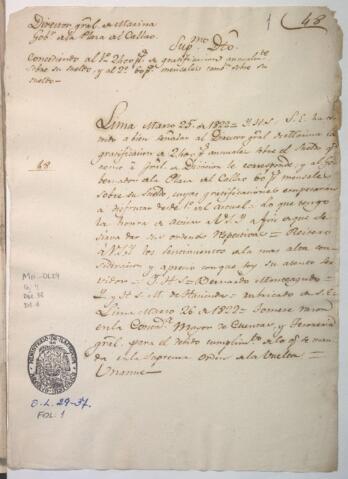 1 (48
Director gral de Marina
Gobr de la Plaza del Callao.
Supmo Dto
Concediendo al 1º 2400 ps de gratificacion anualmte
sobre su sueldo, y al 2º 60 ps mensales sobre su
sueldo
Lima Marzo 25 de 1822 = Y.H.S. S.E. ha
tenido a bien señalar al Director gral de Marina la
gratificacion de 2400 ps anuales sobre el sueldo qe
como a Gral de Division le corresponde, y al Go-
48
bernador de la Plaza del Callao 60 ps mensales
sobre su sueldo, cuyas gratificaciones empezarán
a disfrutar desde 1º del actual. Lo que tengo
la honra de avisar a V.S.Y. a fin de que se
sirva dar sus ordenes respectivas = Reitero
a V.S.Y. los sentimientos de la mas alta con-
sideracion y aprecio con que soy su atento ser-
vidor = Y.H.S = Bernardo Monteagudo =
Y. y H.S. M. de Hacienda =
Lima Marzo 26 de 1822 = Tomese razon
en la Contadª Mayor de Cuentas, y Tesoreria
gral para el debido cumplimto de lo qe se man-
da en la Suprema orden de la vuelta =
Unanue =
MH-OL29
Cj. 4
Doc. 38
Fol. 1
MINISTERIO DE HACIENDA
ARCHIVO HISTORICO
O.L. 29-37.
FOL: 1